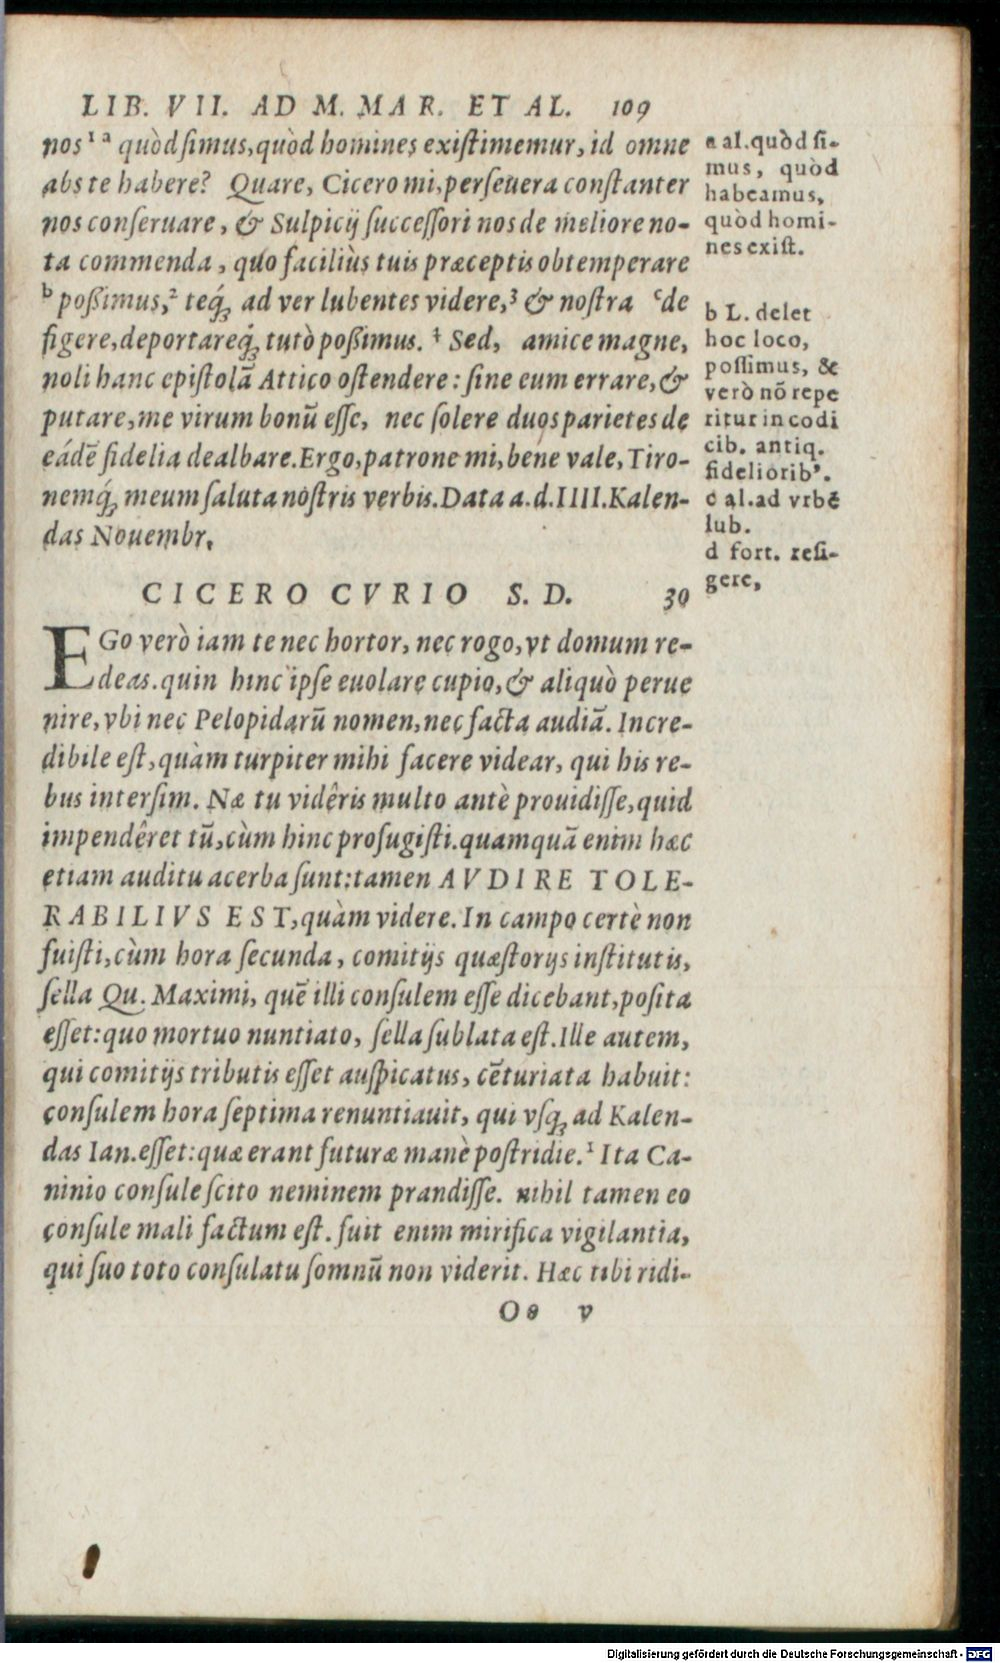 LIB. VII. AD M. MAR. ET AL. 109
nos ¹ ᵃ quòd simus, quòd homines existimemur, id omne
abs te habere? Quare, Cicero mi, perseuera constanter
nos conseruare, & Sulpicij successori nos de meliore no-
ta commenda, quo faciliùs tuis præceptis obtemperare
ᵇ possimus,² teq́; ad ver lubentes videre,³ & nostra ᶜde
figere, deportareq́; tutò possimus.⁴ Sed, amice magne,
noli hanc epistolā Attico ostendere: sine eum errare, &
putare, me virum bonū esse, nec solere duos parietes de
eádē fidelia dealbare. Ergo, patrone mi, bene vale, Tiro-
nemq́; meum saluta nostris verbis. Data a. d. IIII. Kalen-
das Nouembr.
CICERO CVRIO S. D. 30
EGo verò iam te nec hortor, nec rogo, vt domum re-
deas. quin hinc ipse euolare cupio, & aliquò perue
nire, vbi nec Pelopidarū nomen, nec facta audiā. Incre-
dibile est, quàm turpiter mihi facere videar, qui his re-
bus intersim. Næ tu vidêris multo antè prouidisse, quid
impendêret tū, cùm hinc profugisti. quamquā enim hæc
etiam auditu acerba sunt: tamen AVDIRE TOLE-
RABILIVS EST, quàm videre. In campo certè non
fuisti, cùm hora secunda, comitijs quæstorijs institutis,
sella Qu. Maximi, quē illi consulem esse dicebant, posita
esset: quo mortuo nuntiato, sella sublata est. Ille autem,
qui comitijs tributis esset auspicatus, cēturiata habuit:
consulem hora septima renuntiauit, qui vsq; ad Kalen-
das Ian. esset: quæ erant futuræ manè postridie.¹ Ita Ca-
ninio consule scito neminem prandisse. nihil tamen eo
consule mali factum est. fuit enim mirifica vigilantia,
qui suo toto consulatu somnū non viderit. Hæc tibi ridi-
Oo v
a al. quòd si-
mus, quòd
habeamus,
quòd homi-
nes exist.
b L. delet
hoc loco,
possimus, &
verò nō repe
ritur in codi
cib. antiq.
fideliorib⁹.
c al. ad vrbē
lub.
d fort. refi-
gere,
Digitalisierung gefördert durch die Deutsche Forschungsgemeinschaft - DFG